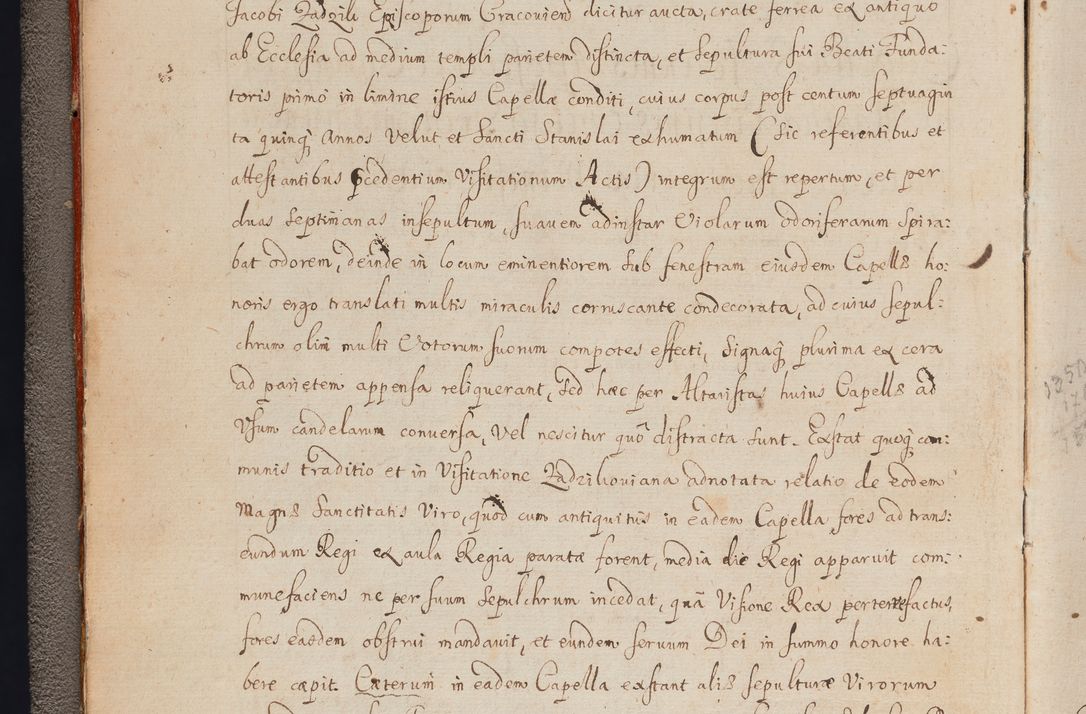 Jacobi Zadzik Episcoporum Cracovien dicitur aucta, crate ferrea ex antiquo
ab Ecclesia ad medium templi parietem distincta, et sepultura sui Beati Funda:
toris primò in limine istius Capellæ conditi, cuius corpus post centum septuagin
ta quinq; Annos velut et Sancti Stanislai exhumatum (Sic referentibus et
attestantibus pcedentium Visitationum Actis) integrum est repertum, et per
duas septimanas insepultum, suavem adinstar Violarum odoriferarum spira:
bat odorem, deinde in locum eminentiorem sub fenestram eiusdem Capellæ ho:
noris ergo translati multis miraculis corruscante condecorata, ad cuius sepul:
chrum olim multi Votorum suorum compotes effecti, Signaq; plurima ex cera
ad parietem appensa reliquerant, Sed hæc per Altaristas huius Capellæ ad
Usum candelarum conversa, vel nescitur quô distracta sunt. Exstat quoq; com:
munis traditio et in Visitatione Zadzikoviana adnotata relatio de eodem
Magnæ Sanctitatis Viro, quod cum antiquitus in eadem Capella fores ad trans:
eundum Regi ex aula Regia paratæ forent, media die Regi apparuit com:
munefaciens ne per suum sepulchrum incedat, quâ Visione Rex perterrefactus,
fores easdem obstrui mandavit, et eundem servum Dei in summo honore ha:
bere cæpit. Cæterum in eadem Capella exstant aliæ sepulturæ Virorum